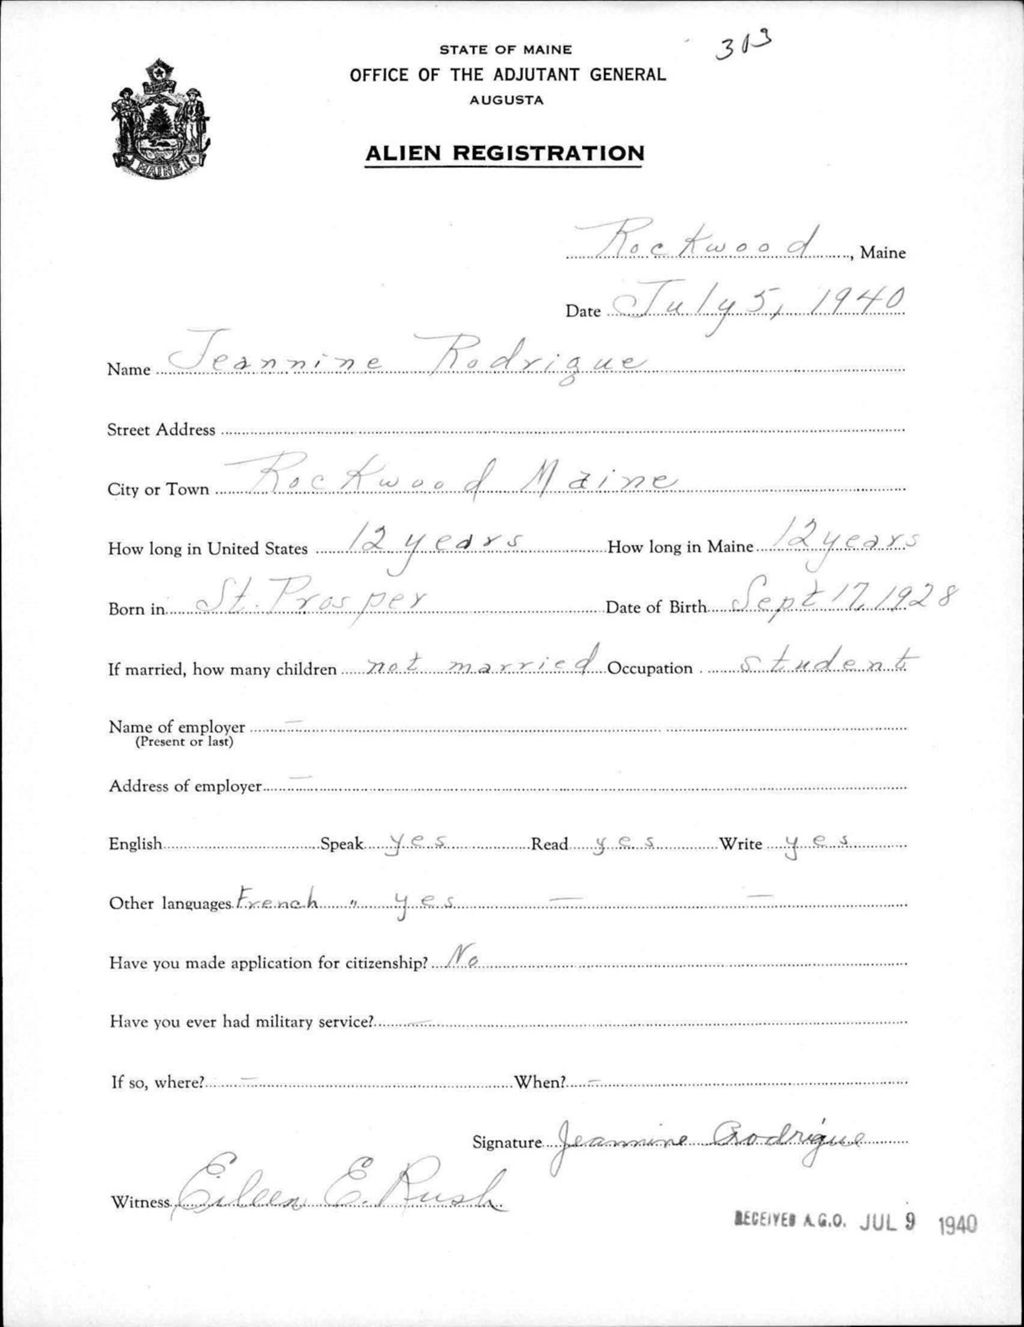 STATE OF MAINE
313
OFFICE OF THE ADJUTANT GENERAL
AUGUSTA
MAINE
ALIEN REGISTRATION
Rockwood, Maine
Date July 5, 1940
Name Jeannine Rodrigue
Street Address
City or Town Rockwood Maine
How long in United States 12 years How long in Maine 12 years
Born in St. Prosper Date of Birth Sept 17, 1928
If married, how many children not married Occupation student
Name of employer —
(Present or last)
Address of employer —
English Speak yes Read yes Write yes
Other languages French " yes — —
Have you made application for citizenship? No
Have you ever had military service? —
If so, where? — When? —
Signature Jeannine Rodrigue
Witness Eileen E. Rush
RECEIVED A.G.O. JUL 9 1940